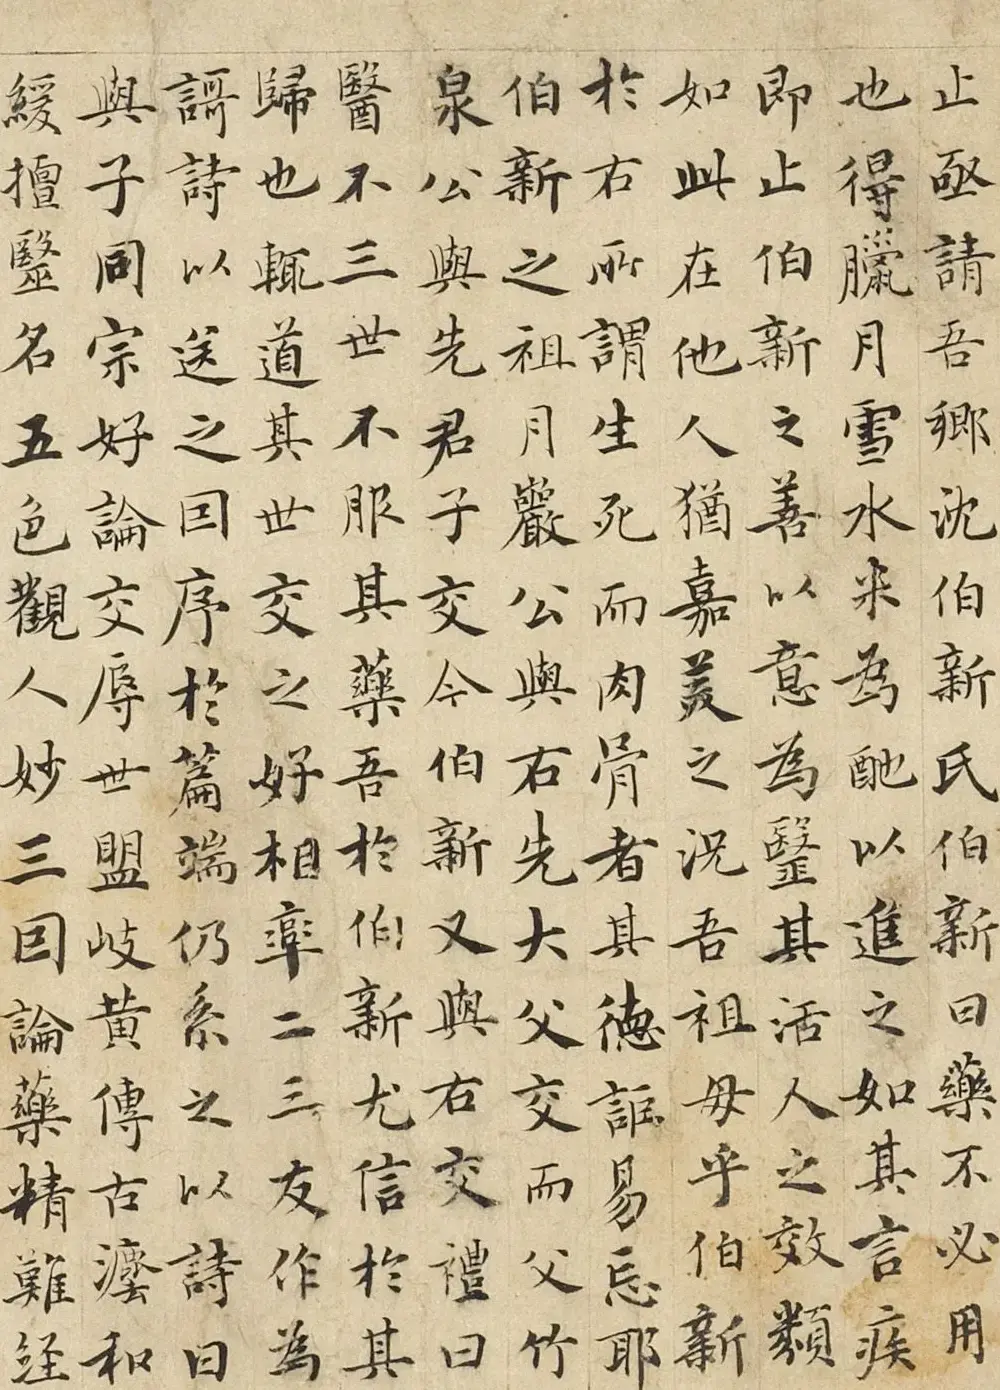 止亟請吾鄉沈伯新氏伯新曰藥不必用
也得臘月雪水米為酏以進之如其言疾
即止伯新之善以意為毉其活人之效類
如此在他人猶嘉美之況吾祖母乎伯新
於右所謂生死而肉骨者其德詎易忘耶
伯新之祖月巖公與右先大父交而父竹
泉公與先君子交今伯新又與右交禮曰
醫不三世不服其藥吾於伯新尤信於其
歸也輒道其世交之好相率二三友作為
謌詩以送之因序於篇端仍系之以詩曰
與子同宗好論交辱世盟岐黃傳古瀍和
緩擅毉名五色觀人妙三因論藥精難經